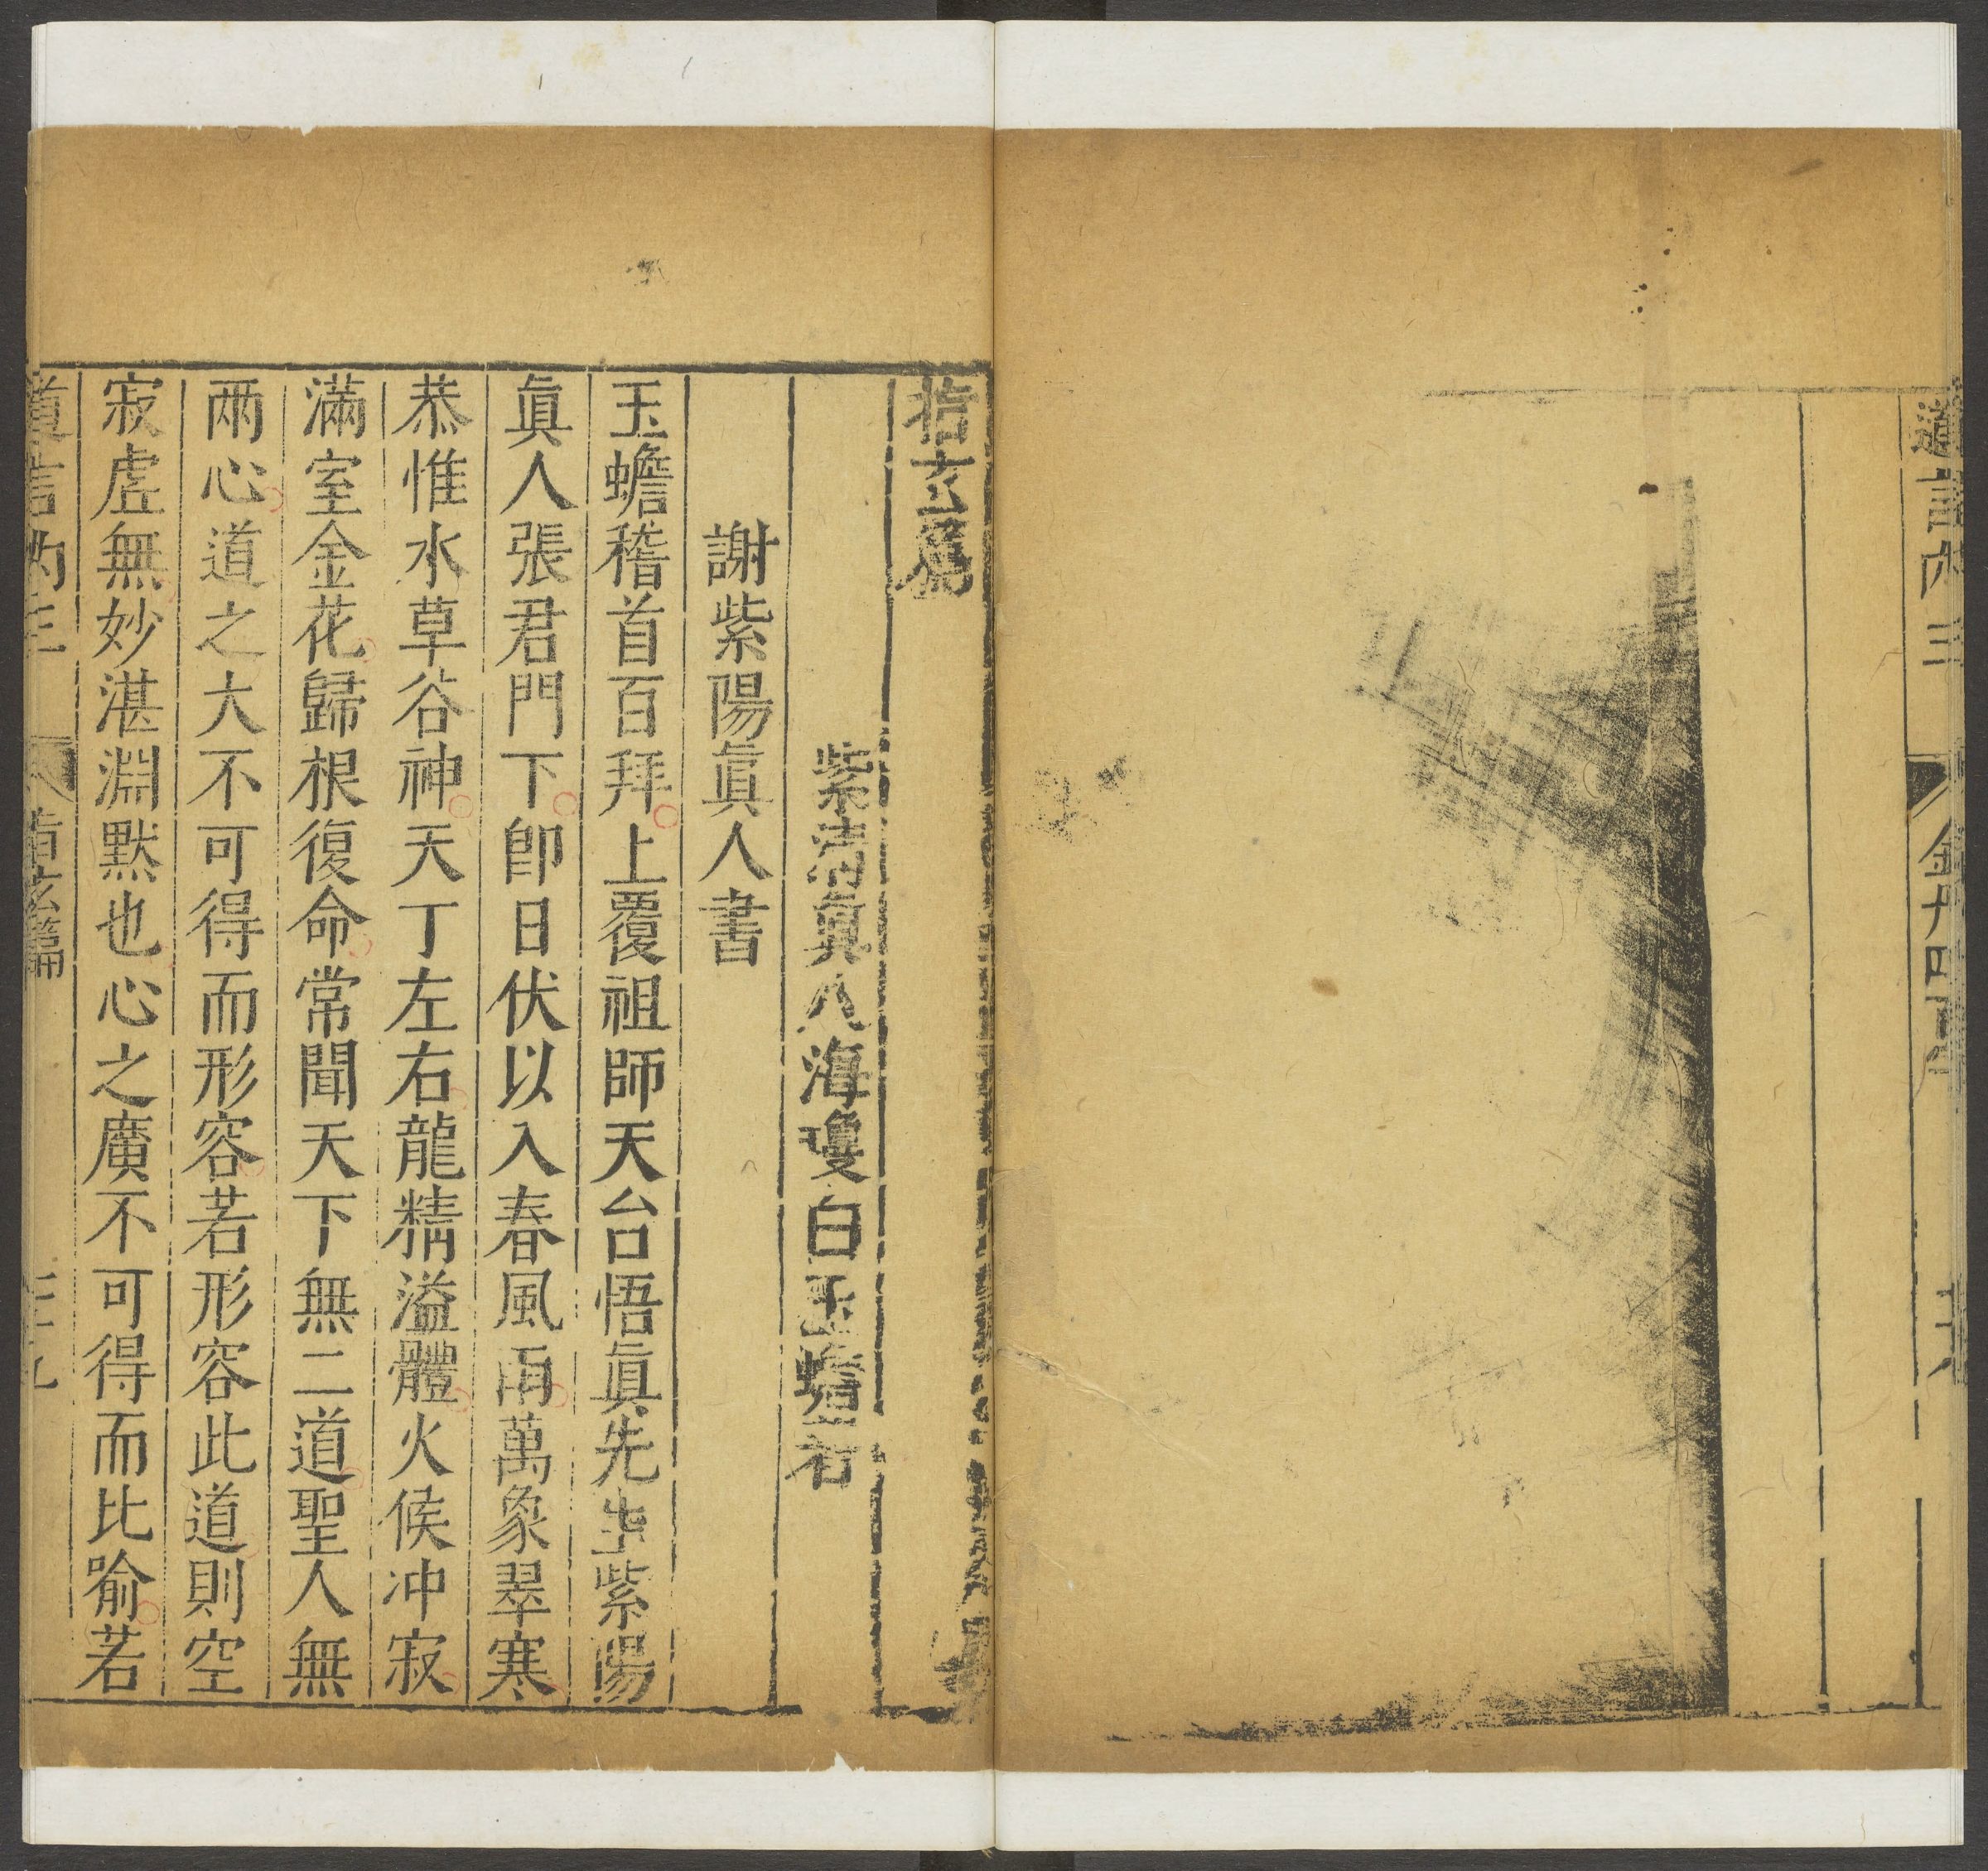 道言內三 金丹四百
指玄篇
紫清眞人海瓊白玉蟾著
謝紫陽眞人書
玉蟾稽首百拜上覆祖師天台悟眞先生紫陽
眞人張君門下卽日伏以入春風雨萬象翠寒
恭惟水草谷神天丁左右龍精溢體火候冲寂
滿室金花歸根復命常聞天下無二道聖人無
兩心道之大不可得而形容若形容此道則空
寂虛無妙湛淵默也心之廣不可得而比喻若
道言內三 指玄篇